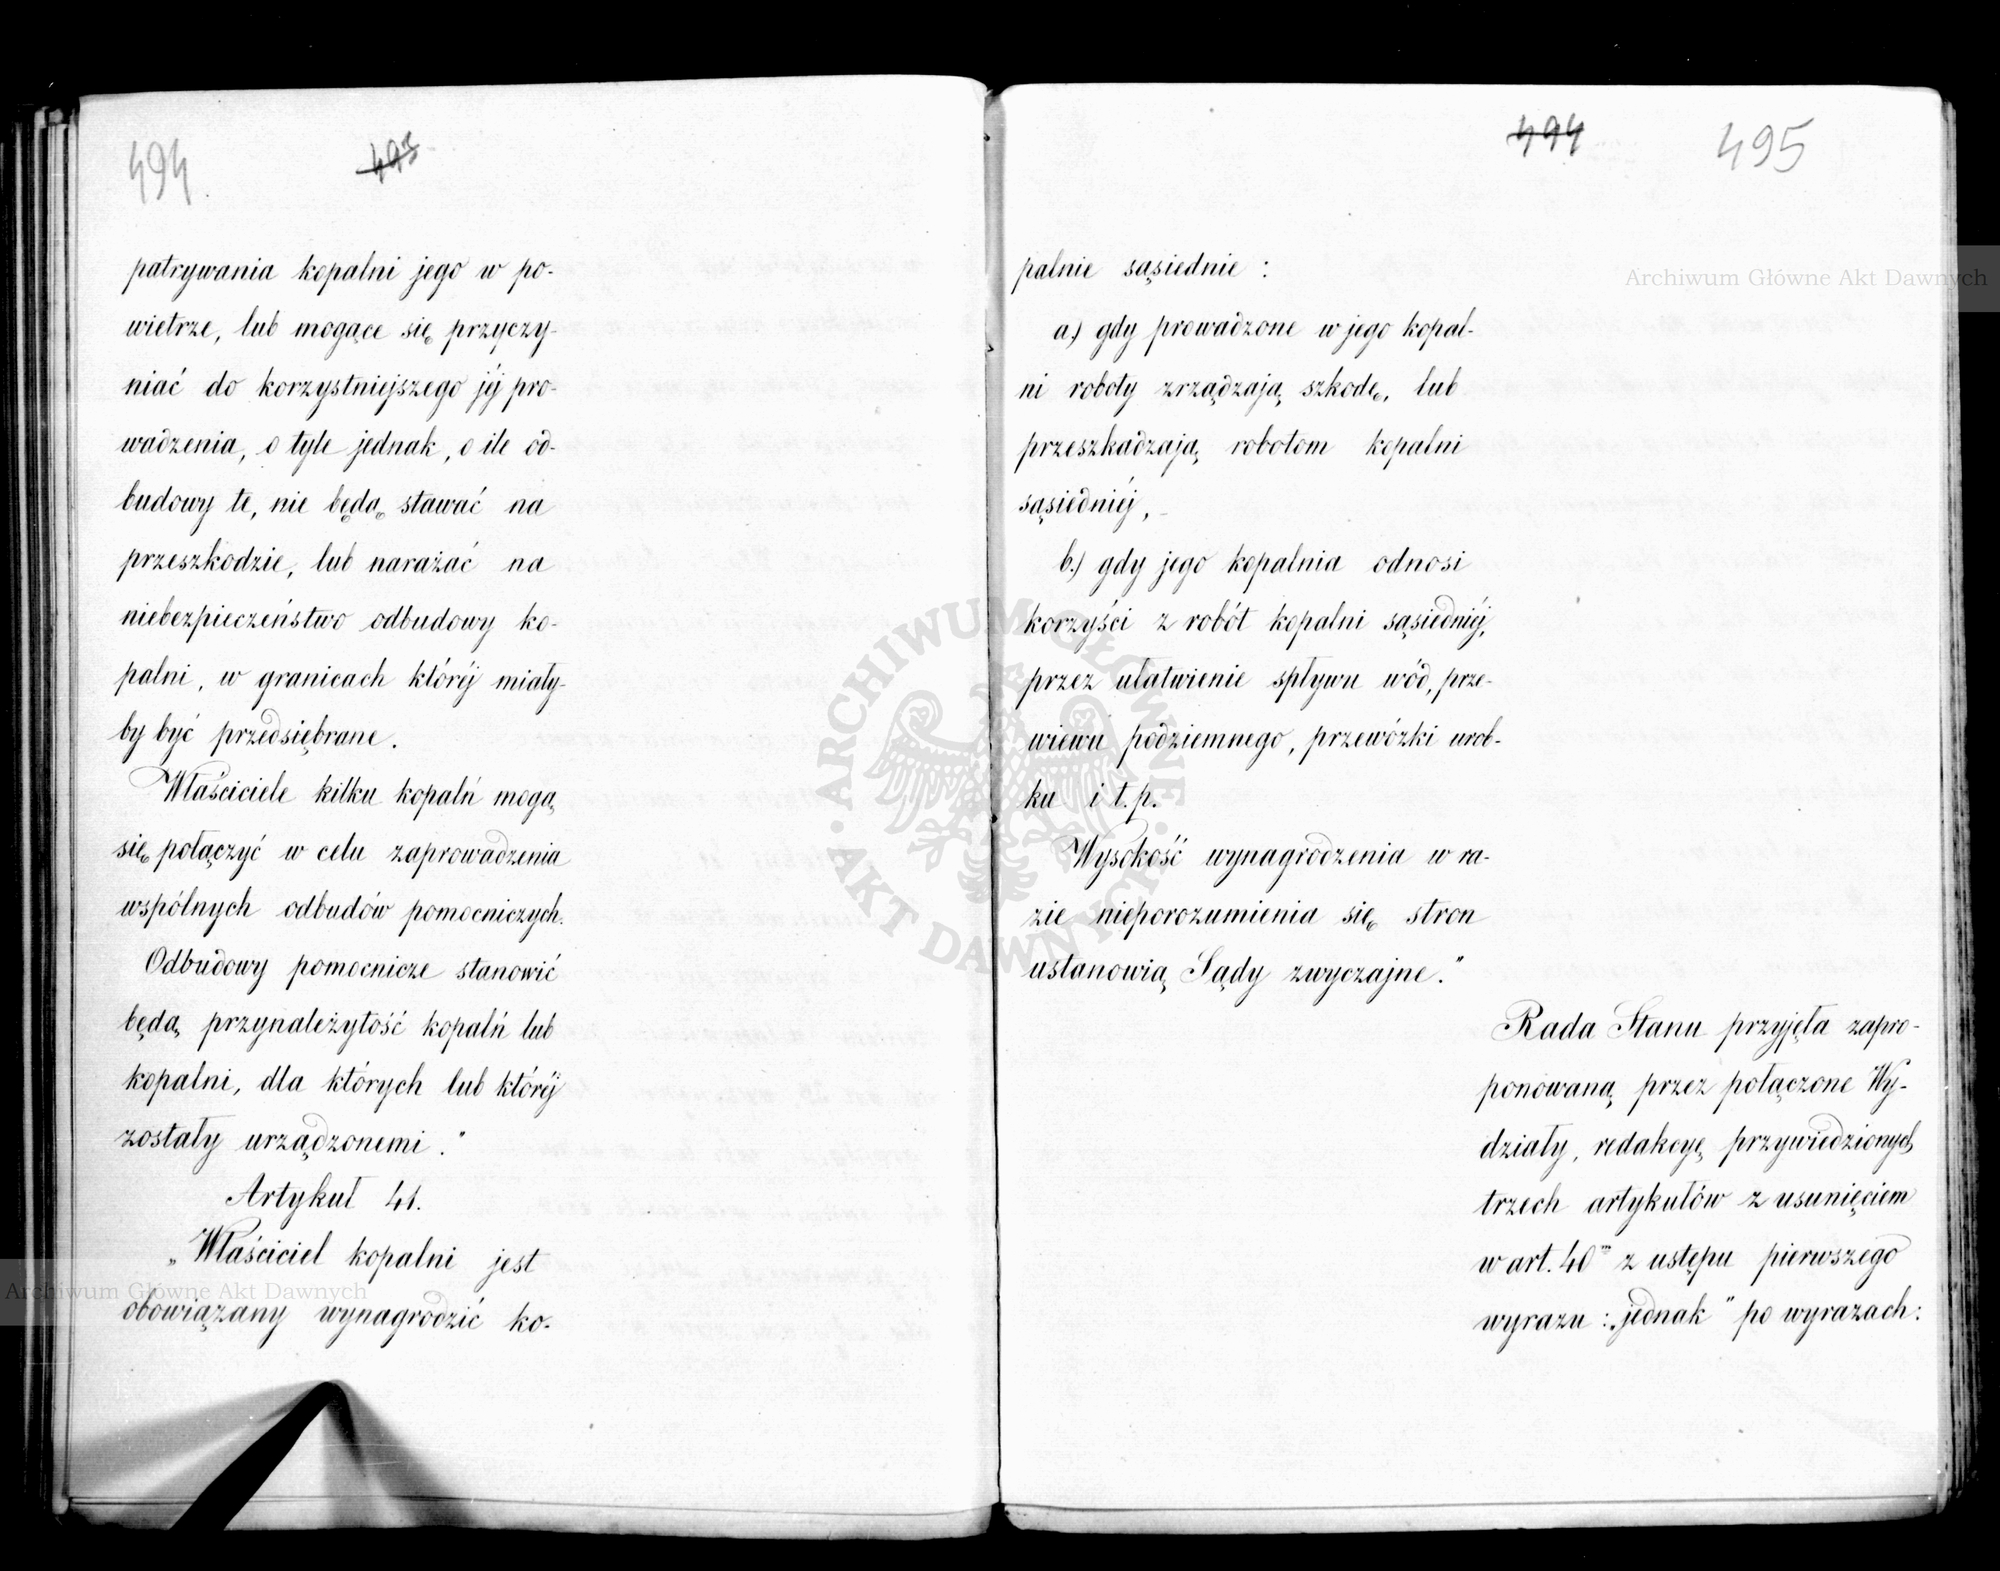 494
493
patrywania kopalni jego w po-
wietrze, lub mogące się przyczy-
niać do korzystniejszego jéj pro-
wadzenia, o tyle jednak, o ile od-
budowy te, nie będą stawać na
przeszkodzie, lub narażać na
niebezpieczeństwo odbudowy ko-
palni, w granicach któréj miały-
by być przedsiębrane.
Właściciele kilku kopalń mogą
się połączyć w celu zaprowadzenia
wspólnych odbudów pomocniczych.
Odbudowy pomocnicze stanowić
będą przynależytość kopalń lub
kopalni, dla których lub któréj
zostały urządzonemi."
Artykuł 41.
„Właściciel kopalni jest
obowiązany wynagrodzić ko-
494
495
palnie sąsiednie:
a.) gdy prowadzone w jego kopal-
ni roboty zrządzają szkodę, lub
przeszkadzają robotom kopalni
sąsiedniéj,
b.) gdy jego kopalnia odnosi
korzyści z robót kopalni sąsiedniéj,
przez ułatwienie spływu wód, prze-
wiewu podziemnego, przewózki urob-
ku i t.p.
Wysokość wynagrodzenia w ra-
zie nieporozumienia się stron
ustanowią Sądy zwyczajne."
Rada Stanu przyjęła zapro-
ponowaną przez połączone Wy-
działy, redakcyę przywiedzionych
trzech artykułów z usunięciem
w art. 40m z ustępu pierwszego
wyrazu: „jednak" po wyrazach:
Archiwum Główne Akt Dawnych
Archiwum Główne Akt Dawnych
ARCHIWUM GŁÓWNE
AKT DAWNYCH